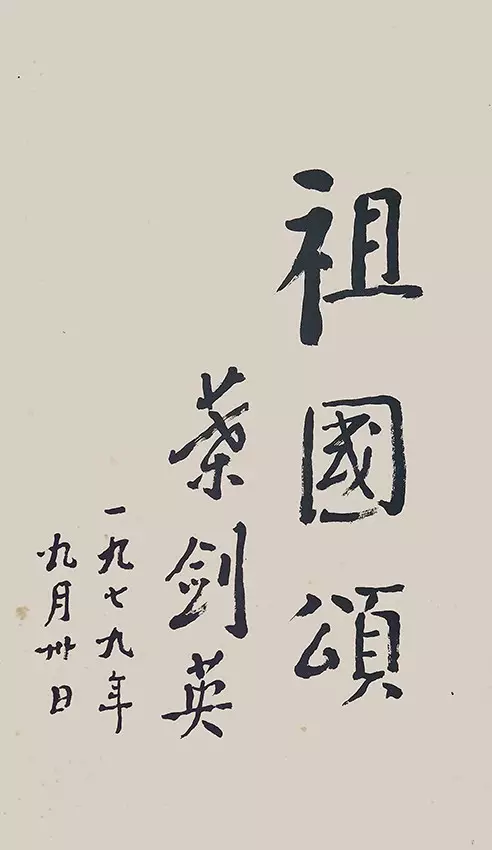 祖國頌
葉剑英
一九七九年
九月卅日